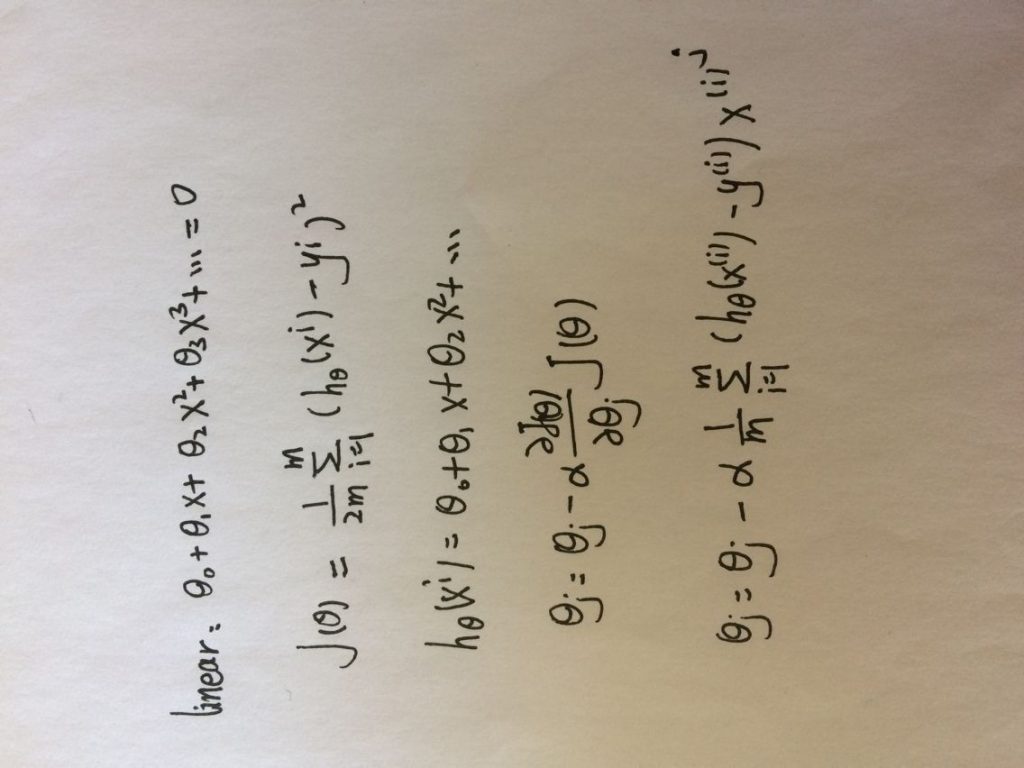 linear: θ₀ + θ₁x + θ₂x² + θ₃x³ + ... = 0
J(θ) = 1/2m Σᵢ₌₁ᵐ (hθ(xⁱ) - yⁱ)²
hθ(xⁱ) = θ₀ + θ₁x + θ₂x² + ...
θj = θj - α ∂J(θ)/∂θj J(θ)
θj = θj - α 1/m Σᵢ₌₁ᵐ (hθ(x⁽ⁱ⁾) - y⁽ⁱ⁾) x⁽ⁱ⁾ʲ